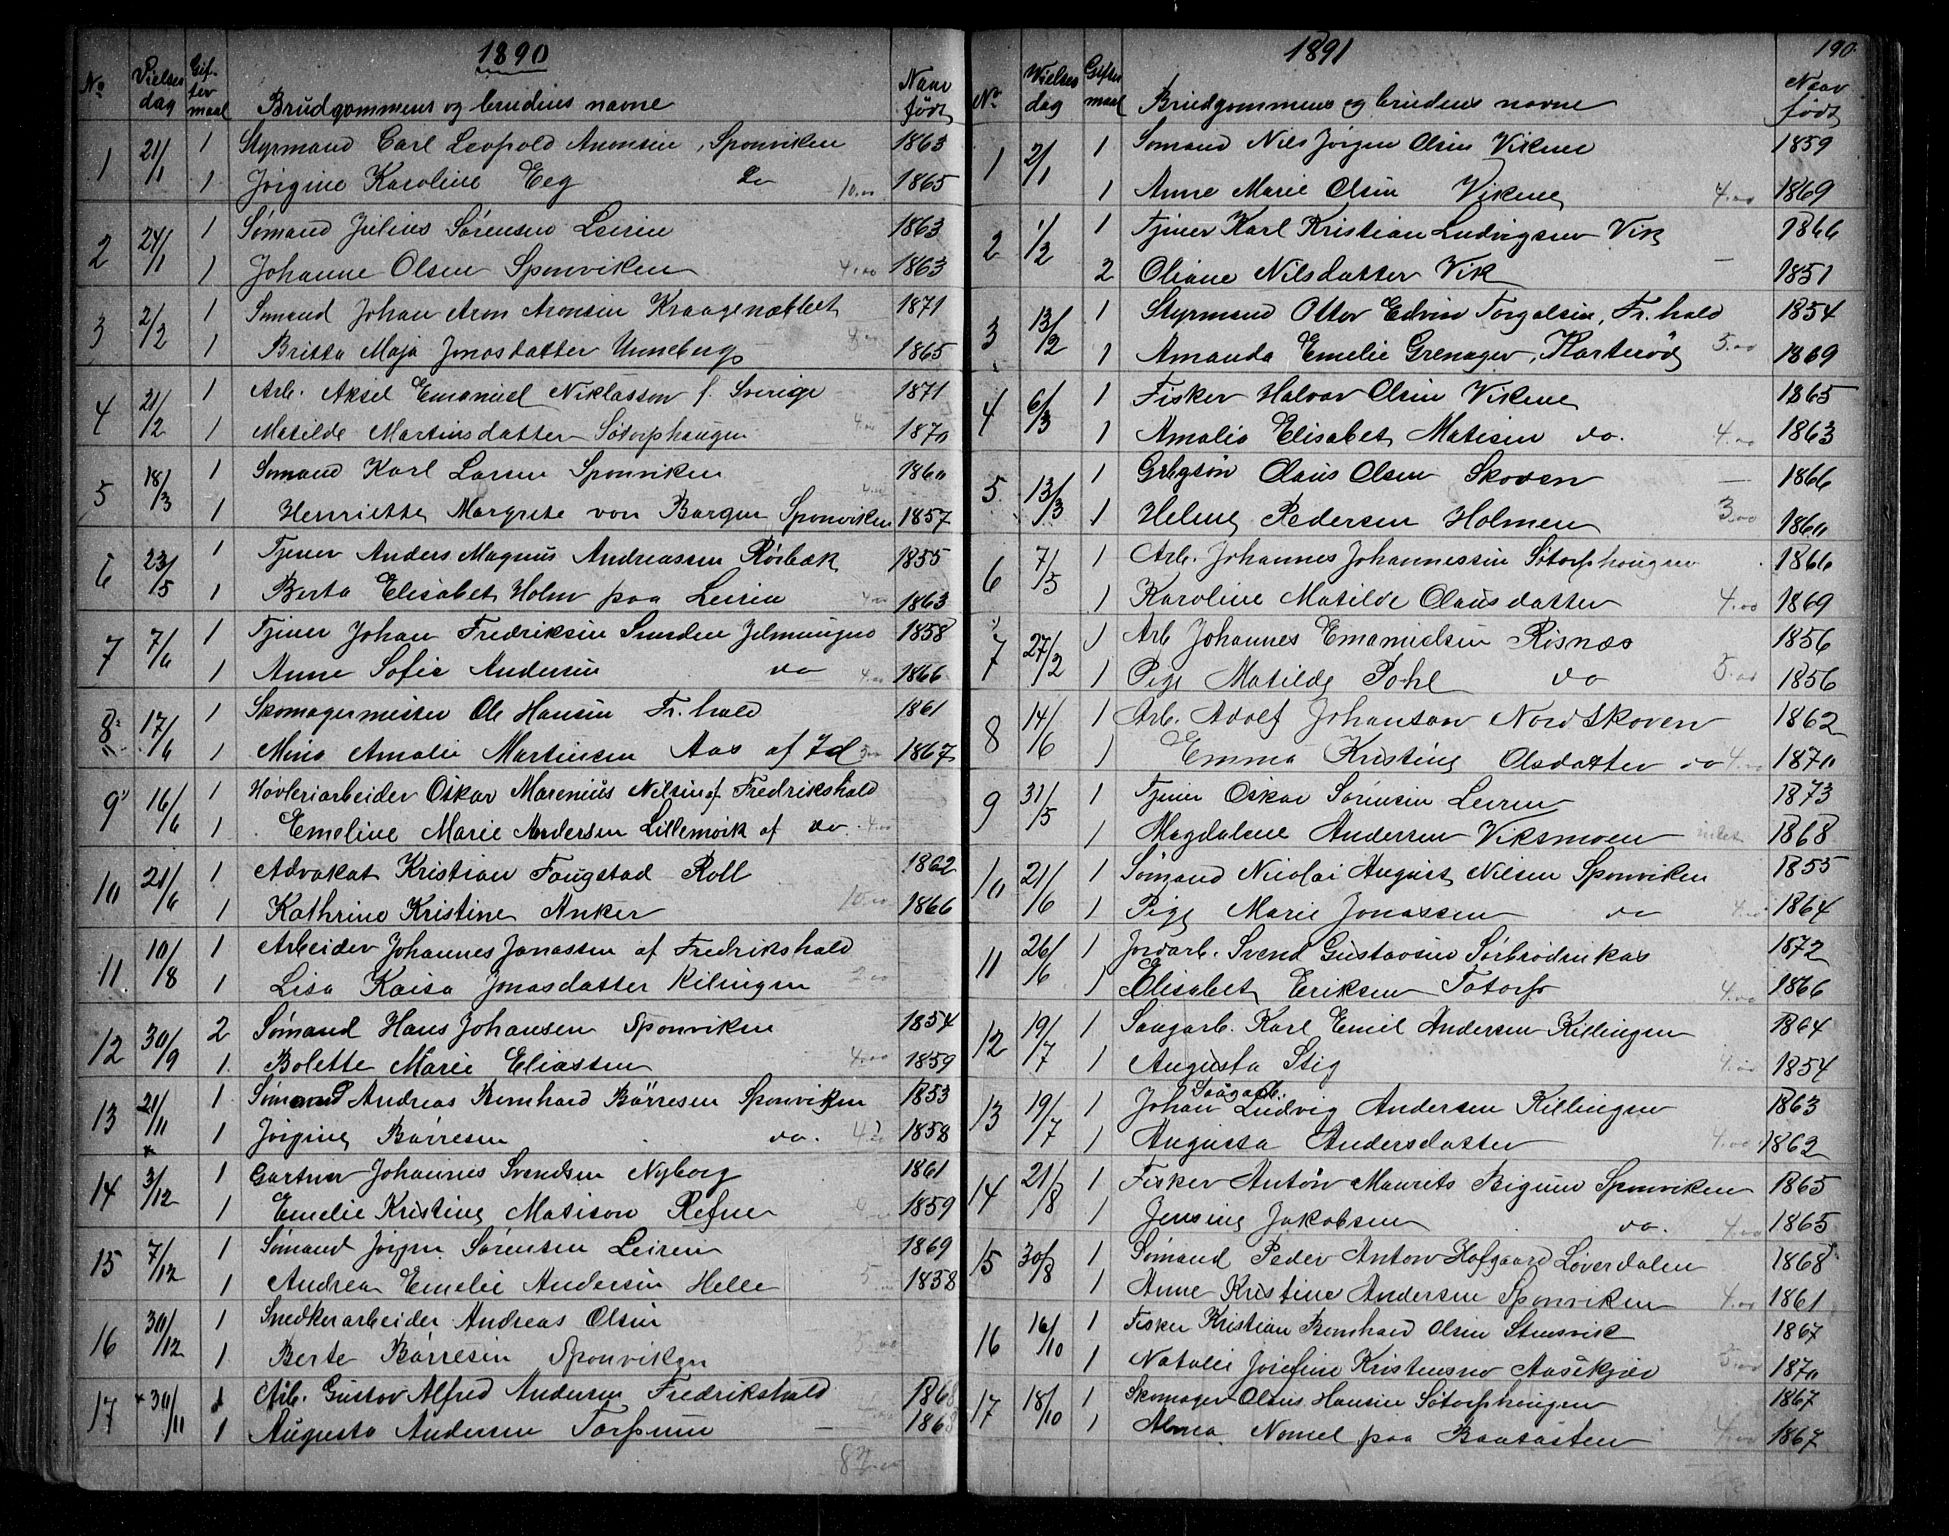 1890
No Vielses dag Giftermaal Brudgommens og brudens navne Naar født
1 21/1 1 Styrmand Carl Leopold Aronsen, Sponviken 1863
1 Jørgine Karoline Eeg do 10.00 1865
2 24/1 1 Sømand Julius Sørensen Leiren 1863
1 Johanne Olsen Sponviken 4.00 1863
3 2/2 1 Sømand Johan Aron Aronsen Kraagenæbbet 1871
1 Britta Maja Jonasdatter Unneberg 8.00 1865
4 21/2 1 Arb. Aksel Emanuel Niklasson f. Sverige 1871
1 Matilde Martinsdatter Søtorphaugen 4.00 1870
5 18/3 1 Sømand Karl Larsen Sponviken 1860
1 Henriette Margrete von Bargen Sponviken 4.00 1857
6 23/5 1 Tjener Anders Magnus Andreassen Rösbæk 1855
1 Berta Elisabet Holm paa Leiren 4.00 1863
7 7/6 1 Tjener Johan Fredriksen 1858
1 Anne Sofie Andersen do 4.00 1866
8 17/6 1 Skomagermester Ole Hansen Fr.hald 1861
1 Mina Amalie Martinsen Aas af Id 1867
9 16/6 1 Høvleriarbeider Oskar Marenius Nilsen af Fredrikshald
1 Emeline Marie Andersen Lillemoik af do. 4.00
10 21/6 1 Advokat Kristian Faugstad Roll 1862
1 Kathrine Kristine Anker 10.00 1866
11 10/8 1 Arbeider Johannes Jonassen af Fredrikshald
1 Lisa Kaisa Jonasdatter Kilingen 2.00
12 30/9 2 Sømand Hans Johansen Sponviken 1854
1 Bolette Marie Eliassen 4.00 1859
13 21/11 1 Sømand Andreas Bernhard Börresen Sponviken 1853
1 Jørgine Børresen do. 1858
14 3/12 1 Gartner Johannes Svendsen Nyborg 1861
1 Emelie Kristine Matison Refne 1859
15 7/12 1 Sømand Jørgen Sørensen Leiren 1869
1 Andrea Emelie Andersen Helle 1858
16 30/12 1 Snedkerarbeider Andreas Olsen
1 Berte Børresen Sponviken 5.00
17 30/11 1 Arb. Gustav Alfred Andersen Fredrikshald 1868
1 Augusta Andersen Torpum — 1868
1891
190
No Vielses dag Giftermaal Brudgommens og brudens navne Naar født
1 2/1 1 Sømand Nils Jørgen Olsen Vikene 1859
1 Anne Marie Olsen Vikene 4.00 1869
2 1/2 1 Tjener Karl Kristian Ludvigsen Vik 1866
2 Oliane Nilsdatter Vik — 1851
3 13/2 1 Styrmand Ottor Edvin Torgalsen, Fr.hald 1854
1 Amanda Emelie Grenager, Karterød 5.00 1869
4 6/3 1 Fisker Halvor Olsen Vikene 1865
1 Amalia Elisabet Matisen do. 4.00 1863
5 13/3 1 Grbgsøn Claus Olsen Skoven — 1866
1 Helene Pedersen Holmen 3.00 1860
6 7/5 1 Arb. Johannes Johannessen Søtorphougen 1866
1 Karoline Matilde Clausdatter 4.00 1869
7 27/2 1 Arb Johannes Emanuelsen Risnæs 1856
1 Pige Matilde Pohl do 5.00 1856
8 14/6 1 Arb. Adolf Johanson Nordskoven 1862
1 Emma Kristine Olsdatter do 4.00 1870
9 31/5 1 Tjener Oskar Sørensen Leiren 1873
1 Magdalene Andersen Viksmoen intet 1868
10 21/6 1 Sømand Nicolai August Nilsen Sponviken 1855
1 Pige Marie Jonassen do 4.00 1864
11 26/6 1 Jordarb. Svend Gustavsen Sørbrødenkas 1872
1 Elisabet Eriksen Totorp 4.00 1866
12 19/7 1 Saugarb. Karl Emil Andersen Killingen 1864
1 Augusta Stig 4.00 1854
Saugarb.
13 19/7 1 Johan Ludvig Andersen Killingen 1863
1 Augusta Andersdatter 4.00 1862
14 21/8 1 Fisker Anton Maurits Bigum Sponviken 1865
1 Jensine Jakobsen do. 4.00 1865
15 30/8 1 Sømand Peder Anton Hofgaard Løverdalen 1868
1 Anne Kristine Andersen Sponviken 4.00 1861
16 16/10 1 Fisker Kristian Bernhard Olsen Stensvik 1867
1 Natalie Josefine Kristensen Aasekjær 5.00 1870
17 18/10 1 Skomager Claus Hansen Søtorphøugen 1867
1 Alma Nomel paa Baastøsten 4.00 1867